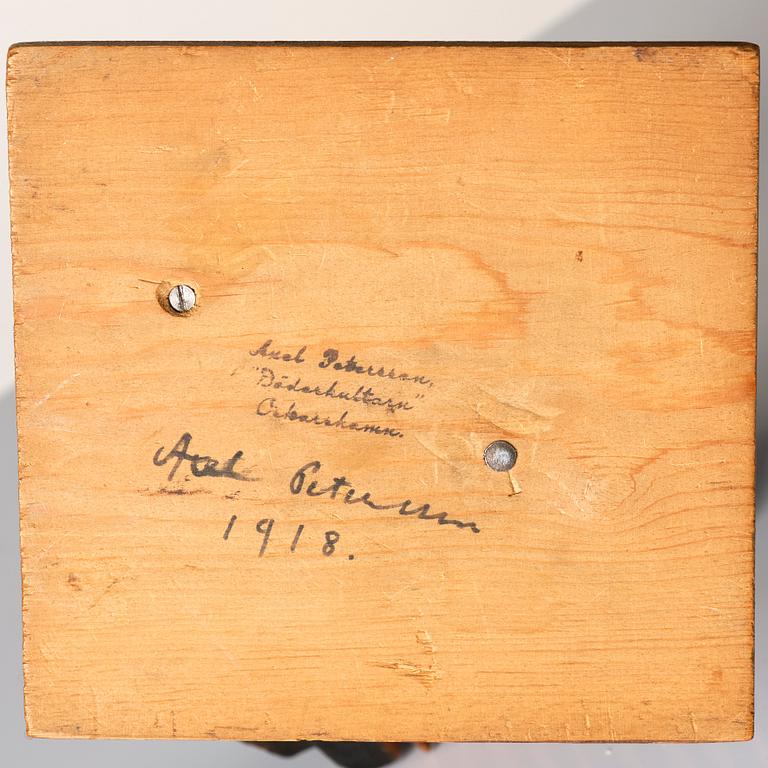 Axel Petersson,
"Döderhultarn"
Oskarshamn.
Axel Petersson
1918.